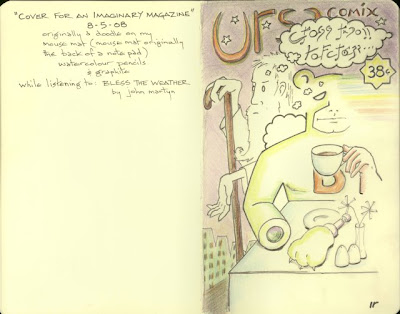 "COVER FOR AN IMAGINARY MAGAZINE"
8-5-08
originally a doodle on my
mouse mat (mouse mat originally
the back of a note pad)
watercolour pencils
& graphite
while listening to: BLESS THE WEATHER.
by john martyn
COMIX
38¢